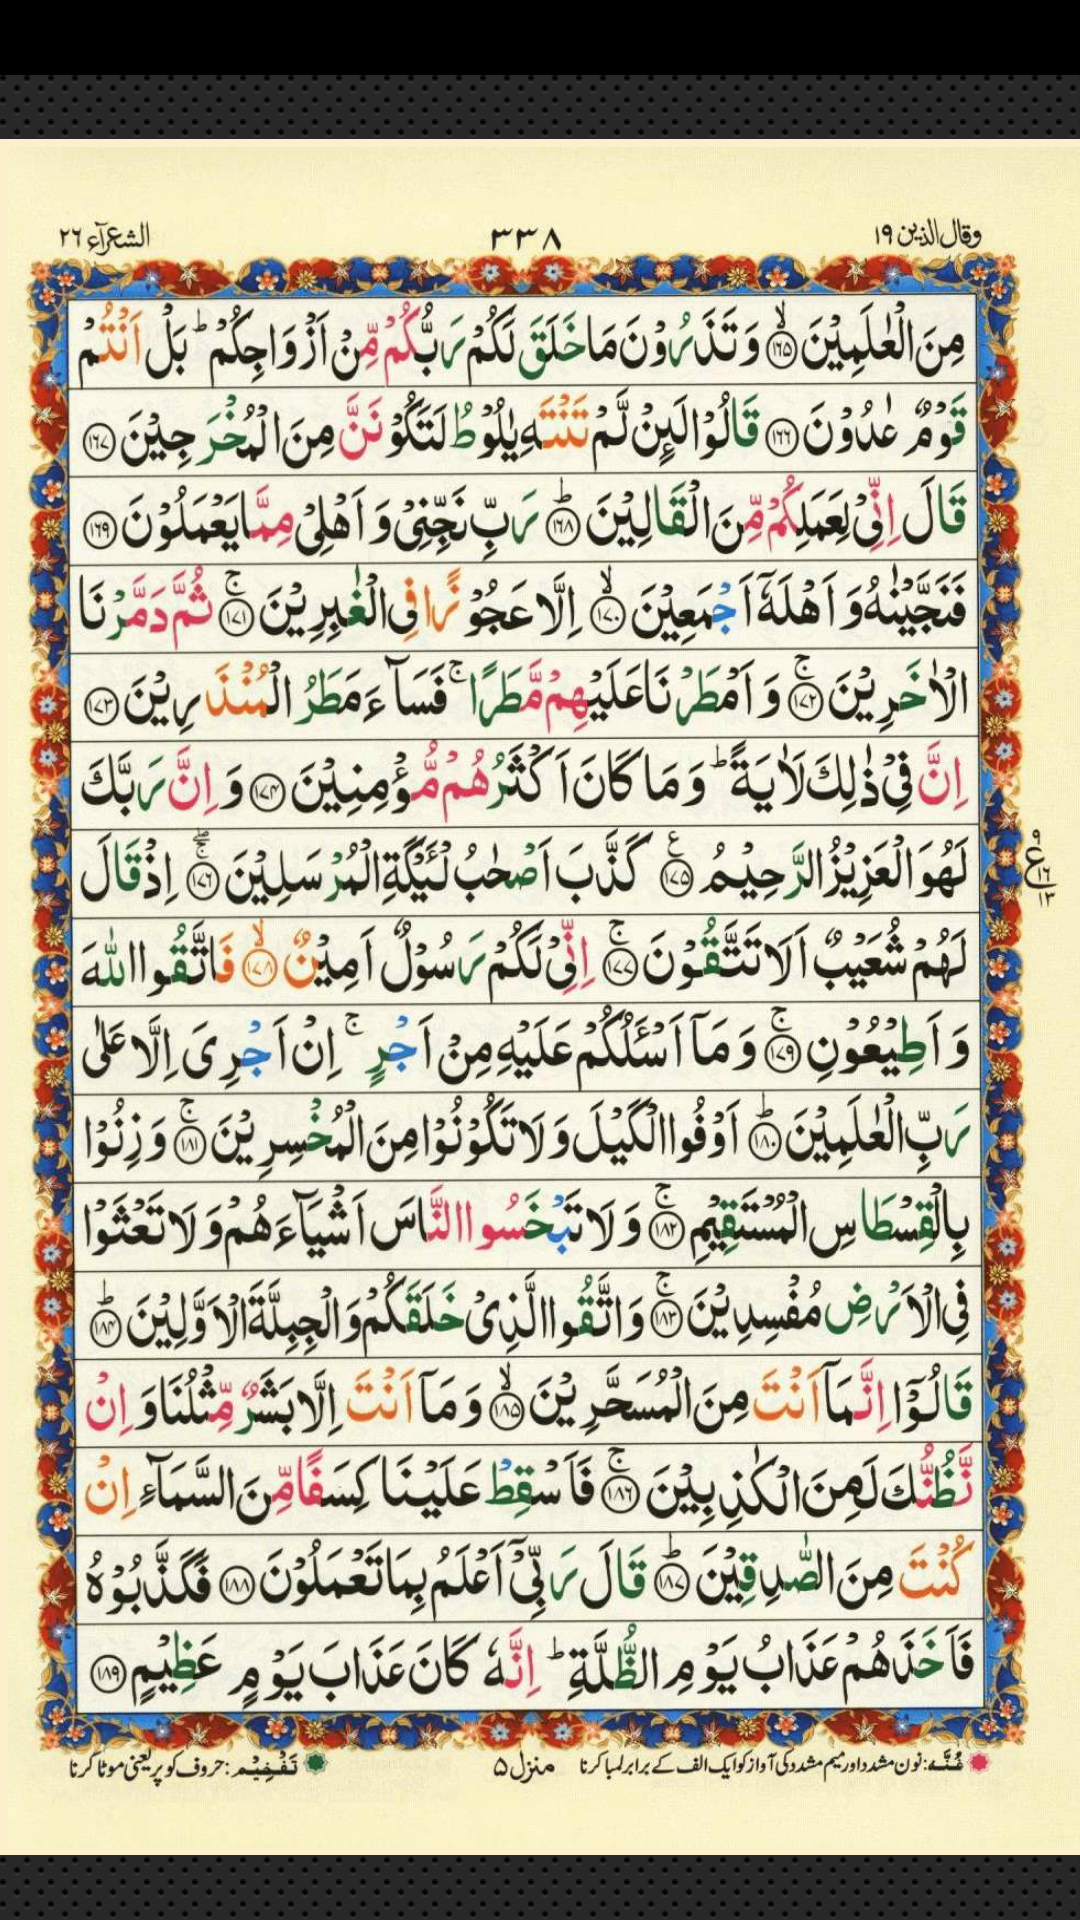 وقال الذین ۱۹
۳۳۸
الشعرآء ۲۶
مِنَ الْعٰلَمِیْنَ ۙ﴿۱۶۵﴾ وَ تَذَرُوْنَ مَا خَلَقَ لَكُمْ رَبُّكُمْ مِّنْ اَزْوَاجِكُمْ ؕ بَلْ اَنْتُمْ
قَوْمٌ عٰدُوْنَ ﴿۱۶۶﴾ قَالُوْا لَىِٕنْ لَّمْ تَنْتَهِ یٰلُوْطُ لَتَكُوْنَنَّ مِنَ الْمُخْرَجِیْنَ ﴿۱۶۷﴾
قَالَ اِنِّیْ لِعَمَلِكُمْ مِّنَ الْقَالِیْنَ ؕ﴿۱۶۸﴾ رَبِّ نَجِّنِیْ وَ اَهْلِیْ مِمَّا یَعْمَلُوْنَ ﴿۱۶۹﴾
فَنَجَّیْنٰهُ وَ اَهْلَهٗۤ اَجْمَعِیْنَ ۙ﴿۱۷۰﴾ اِلَّا عَجُوْزًا فِی الْغٰبِرِیْنَ ۚ﴿۱۷۱﴾ ثُمَّ دَمَّرْنَا
الْاٰخَرِیْنَ ۚ﴿۱۷۲﴾ وَ اَمْطَرْنَا عَلَیْهِمْ مَّطَرًا ۚ فَسَآءَ مَطَرُ الْمُنْذَرِیْنَ ﴿۱۷۳﴾
اِنَّ فِیْ ذٰلِكَ لَاٰیَةً ؕ وَ مَا كَانَ اَكْثَرُهُمْ مُّؤْمِنِیْنَ ﴿۱۷۴﴾ وَ اِنَّ رَبَّكَ
لَهُوَ الْعَزِیْزُ الرَّحِیْمُ ﴿۱۷۵﴾ ع كَذَّبَ اَصْحٰبُ لْـَٔیْكَةِ الْمُرْسَلِیْنَ ۚۖ﴿۱۷۶﴾ اِذْ قَالَ
۹ ع ۱۶ ۱۳
لَهُمْ شُعَیْبٌ اَلَا تَتَّقُوْنَ ۚ﴿۱۷۷﴾ اِنِّیْ لَكُمْ رَسُوْلٌ اَمِیْنٌ ۙ﴿۱۷۸﴾ فَاتَّقُوا اللّٰهَ
وَ اَطِیْعُوْنِ ۚ﴿۱۷۹﴾ وَ مَاۤ اَسْـَٔلُكُمْ عَلَیْهِ مِنْ اَجْرٍ ۚ اِنْ اَجْرِیَ اِلَّا عَلٰی
رَبِّ الْعٰلَمِیْنَ ؕ﴿۱۸۰﴾ اَوْفُوا الْكَیْلَ وَ لَا تَكُوْنُوْا مِنَ الْمُخْسِرِیْنَ ۚ﴿۱۸۱﴾ وَ زِنُوْا
بِالْقِسْطَاسِ الْمُسْتَقِیْمِ ۚ﴿۱۸۲﴾ وَ لَا تَبْخَسُوا النَّاسَ اَشْیَآءَهُمْ وَ لَا تَعْثَوْا
فِی الْاَرْضِ مُفْسِدِیْنَ ۚ﴿۱۸۳﴾ وَ اتَّقُوا الَّذِیْ خَلَقَكُمْ وَ الْجِبِلَّةَ الْاَوَّلِیْنَ ؕ﴿۱۸۴﴾
قَالُوْۤا اِنَّمَاۤ اَنْتَ مِنَ الْمُسَحَّرِیْنَ ۙ﴿۱۸۵﴾ وَ مَاۤ اَنْتَ اِلَّا بَشَرٌ مِّثْلُنَا وَ اِنْ
نَّظُنُّكَ لَمِنَ الْكٰذِبِیْنَ ۚ﴿۱۸۶﴾ فَاَسْقِطْ عَلَیْنَا كِسَفًا مِّنَ السَّمَآءِ اِنْ
كُنْتَ مِنَ الصّٰدِقِیْنَ ؕ﴿۱۸۷﴾ قَالَ رَبِّیْۤ اَعْلَمُ بِمَا تَعْمَلُوْنَ ﴿۱۸۸﴾ فَكَذَّبُوْهُ
فَاَخَذَهُمْ عَذَابُ یَوْمِ الظُّلَّةِ ؕ اِنَّهٗ كَانَ عَذَابَ یَوْمٍ عَظِیْمٍ ﴿۱۸۹﴾
غُنَّہ: نون مشدد اور میم مشدد کی آواز کو ایک الف کے برابر لمبا کرنا منزل ۵ تَفْخِیْم: حروف کو پر یعنی موٹا کرنا